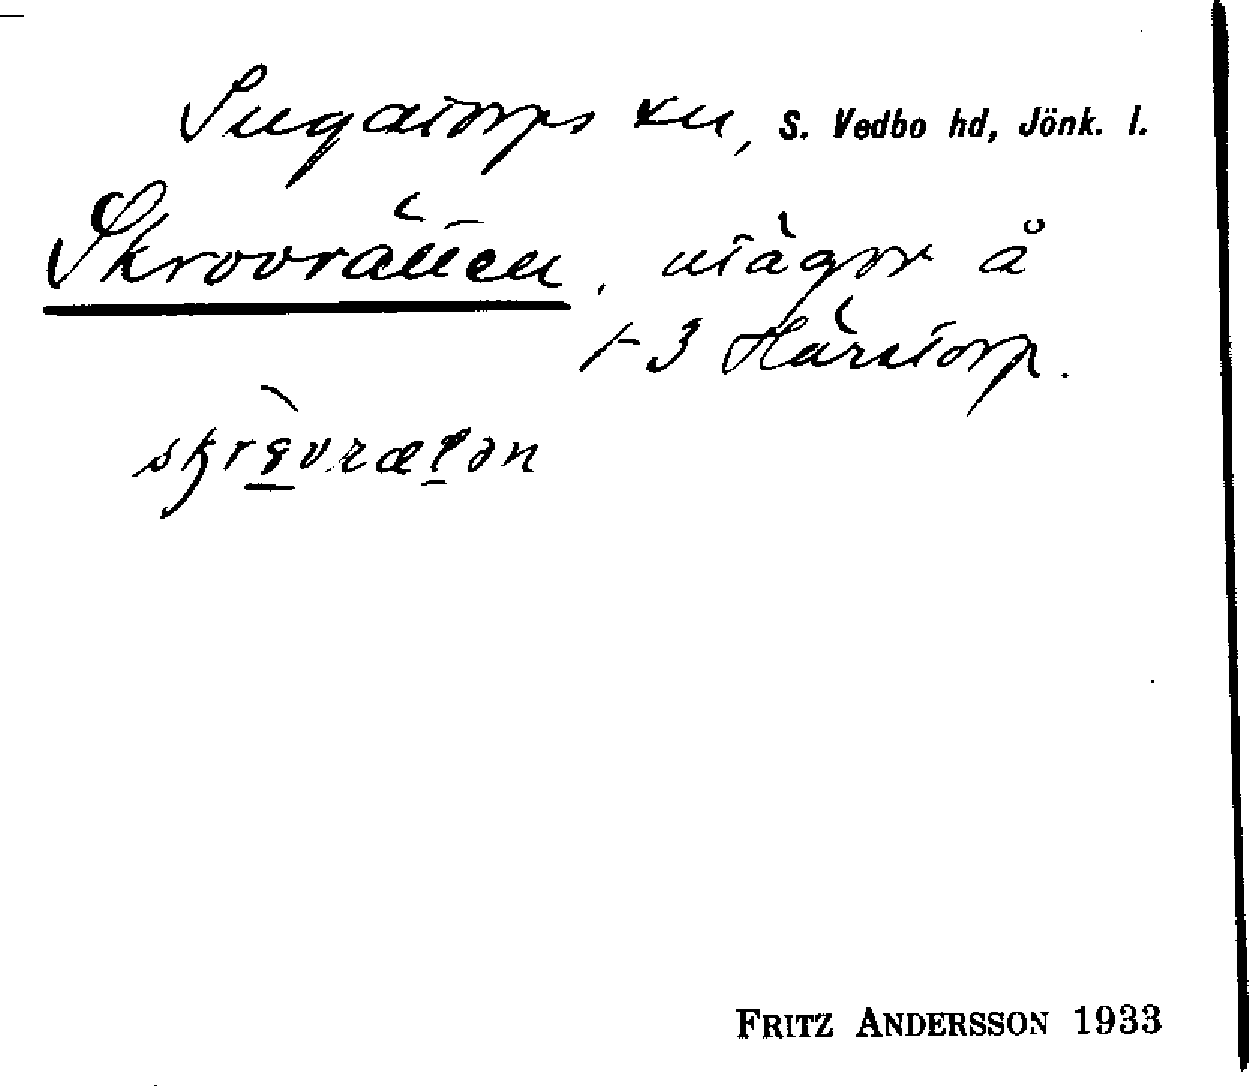 Ingatorps sn, S. Vedbo hd, Jönk. l.
Skrovrätten, utägor å
1-3 Härstorp.
skrovrætən
FRITZ ANDERSSON 1933